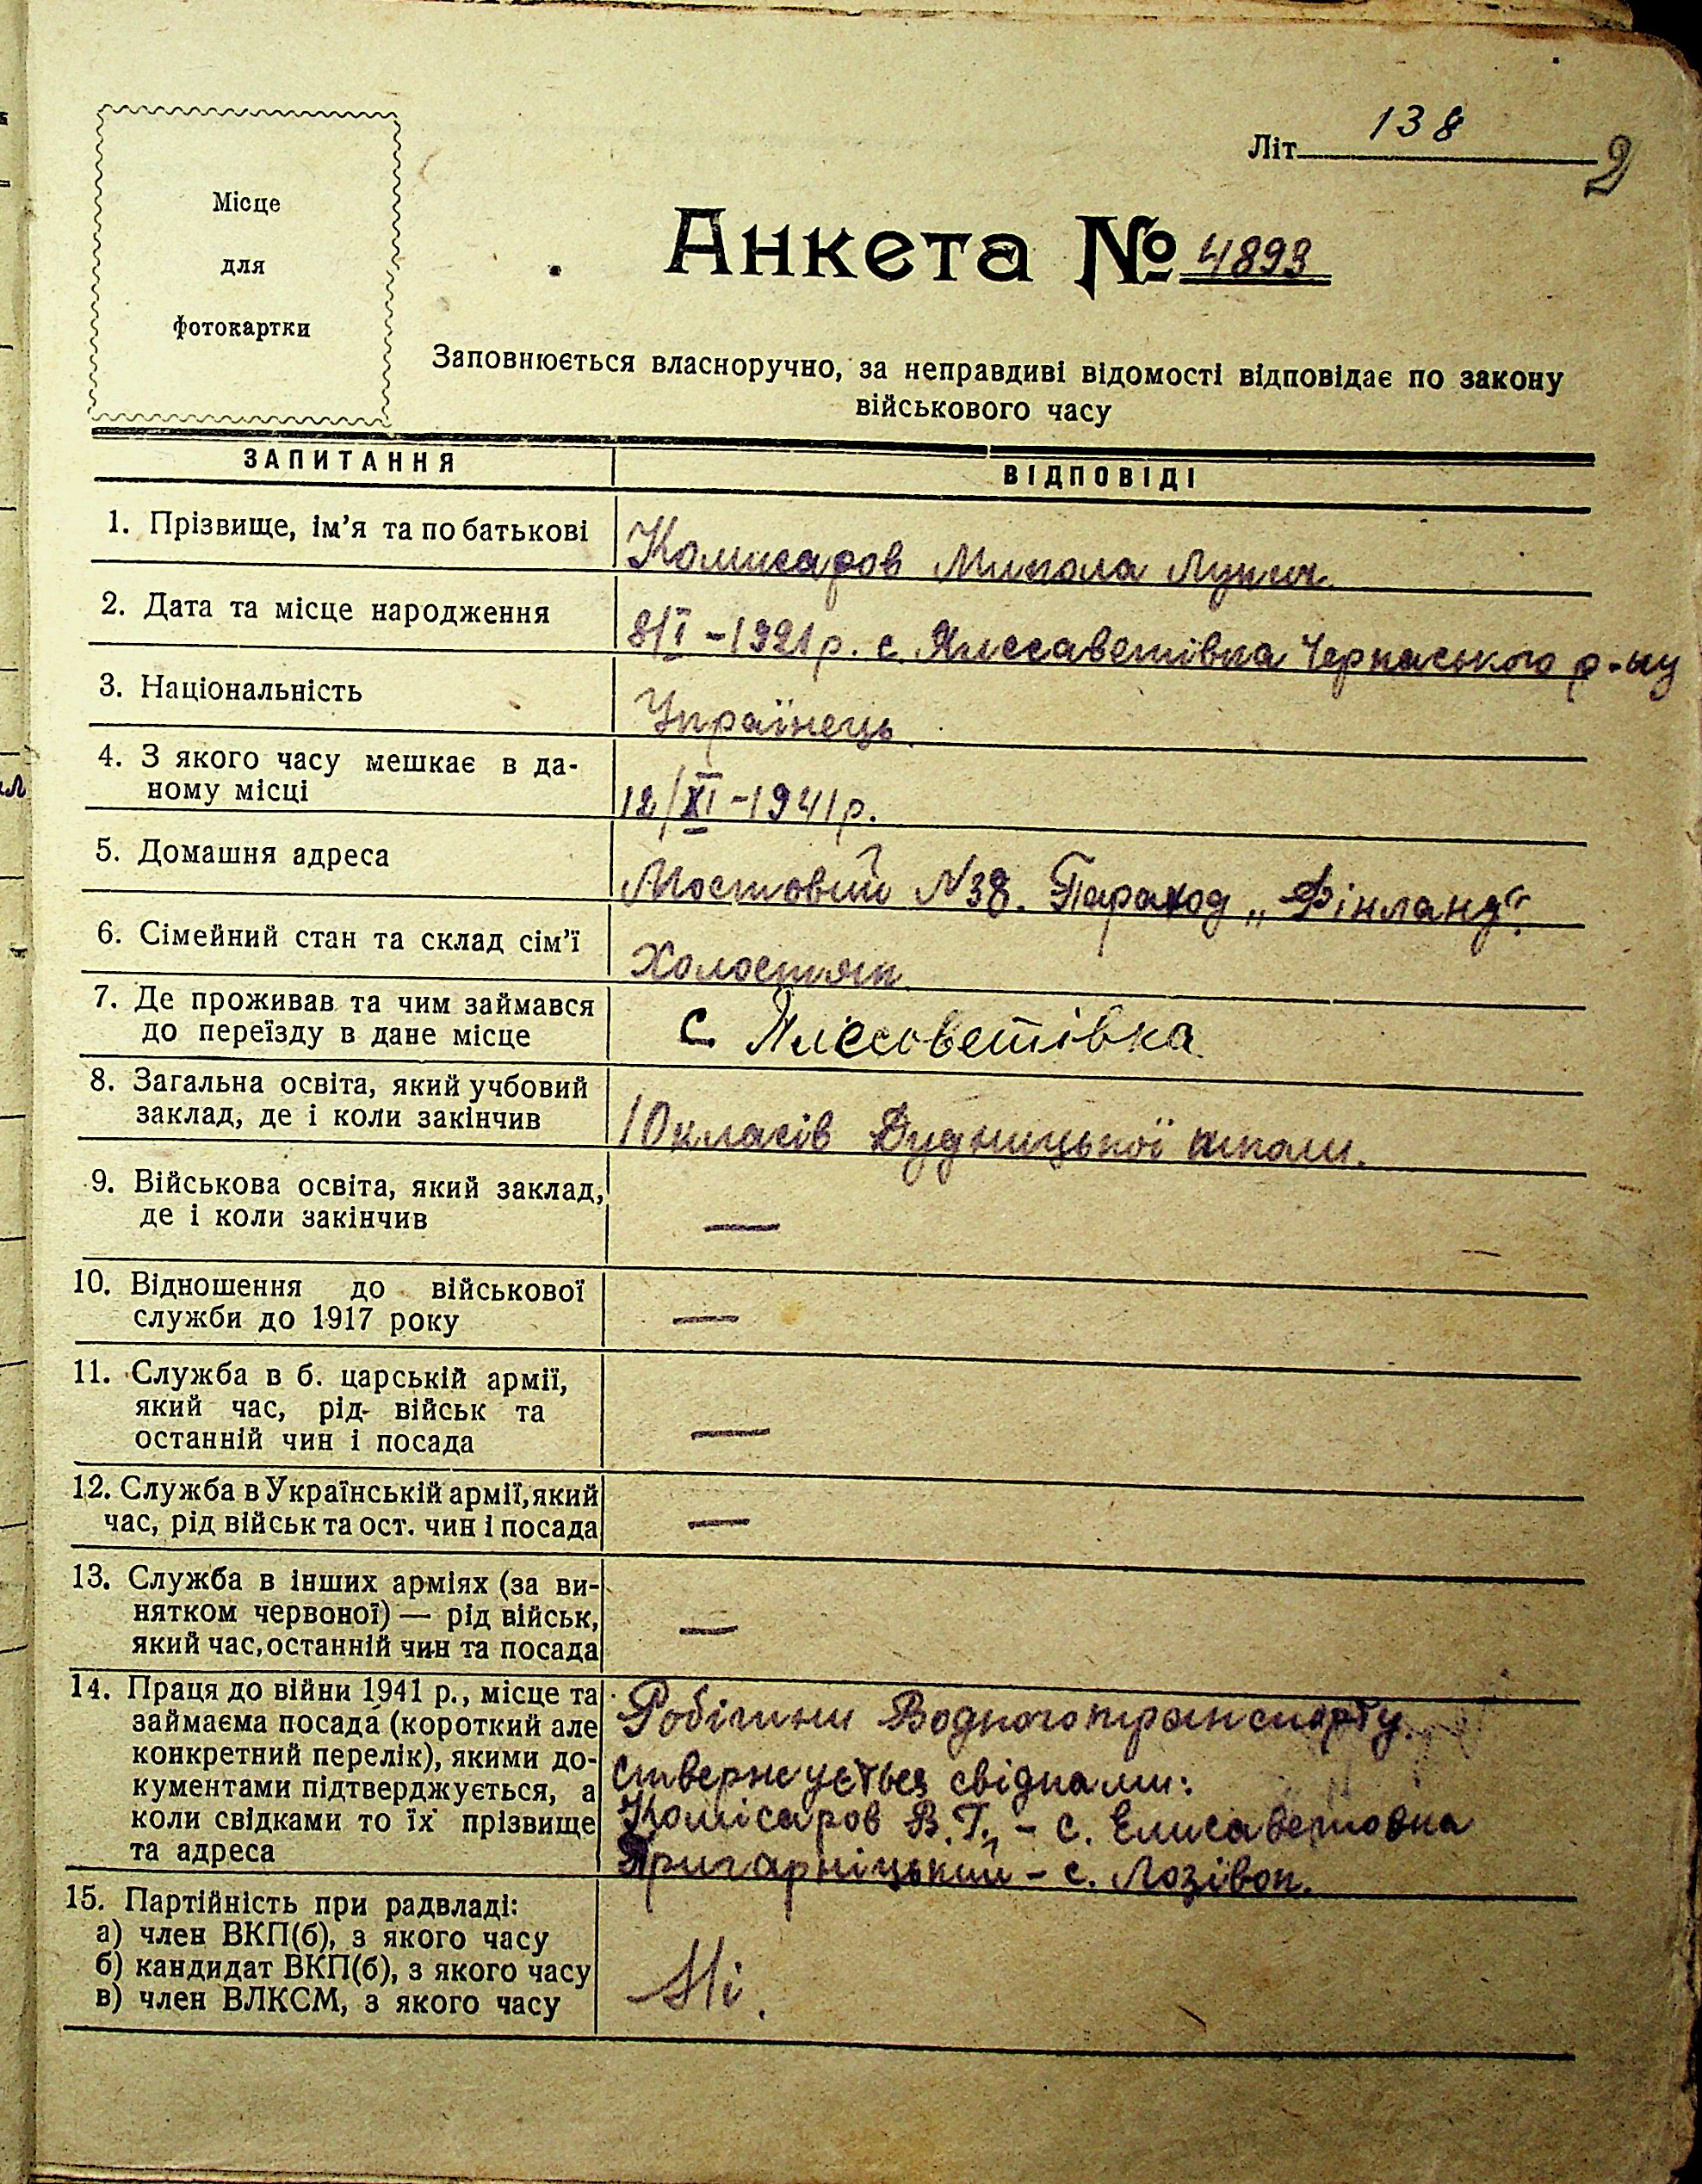 Літ. 138
2
Місце
для
фотокартки
Анкета № 4893
Заповнюється власноручно, за неправдиві відомості відповідає по закону
військового часу
ЗАПИТАННЯ ВІДПОВІДІ
1. Прізвище, ім'я та по батькові Комисаров Микола Лукич.
2. Дата та місце народження 8/I-1921р. с. Ялссаветівка Черкаського р-ну
3. Національність Українець.
4. З якого часу мешкає в да-
ному місці 12/XI-1941р.
5. Домашня адреса Мостовий N38. Пароход „Фінланд".
6. Сімейний стан та склад сім'ї Холостяк.
7. Де проживав та чим займався
до переїзду в дане місце с. Ялєсоветівка
8. Загальна освіта, який учбовий
заклад, де і коли закінчив 10 класів Дудницької школи.
9. Військова освіта, який заклад,
де і коли закінчив —
10. Відношення до військової
служби до 1917 року —
11. Служба в б. царській армії,
який час, рід військ та
останній чин і посада —
12. Служба в Українській армії, який
час, рід військ та ост. чин і посада —
13. Служба в інших арміях (за ви-
нятком червоної) — рід військ,
який час, останній чин та посада —
14. Праця до війни 1941 р., місце та Робітник Водного транспорту.
займаєма посада (короткий але
конкретний перелік), якими до- ствержуеться свідками:
кументами підтверджується, а
коли свідками то їх прізвище Комісаров В.Г. - с. Елисаветовка
та адреса Пригарніцький - с. Лозівок.
15. Партійність при радвладі:
а) член ВКП(б), з якого часу
б) кандидат ВКП(б), з якого часу
в) член ВЛКСМ, з якого часу Ні.